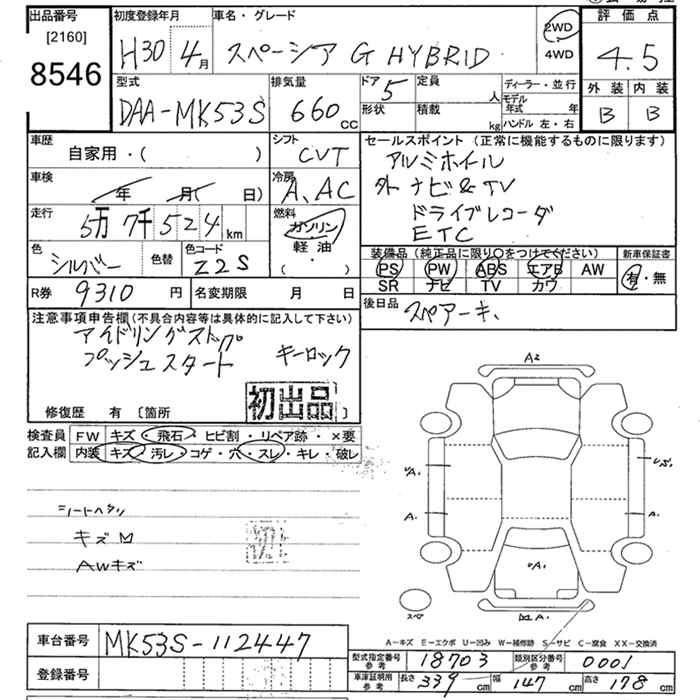 出品番号
[2160]
8546
初度登録年月
H30 4月
車名・グレード
スペーシア G HYBRID
2WD
4WD
評価点
4.5
外装 内装
B B
型式
DAA-MK53S
排気量
660cc
ドア 5
形状
定員 人
積載 kg
ディーラー・並行
モデル年式 年
ハンドル 左・右
車歴
自家用・( )
シフト
CVT
セールスポイント(正常に機能するものに限ります)
アルミホイル
外 ナビ&TV
ドライブレコーダ
ETC
車検
年 月( 日)
冷房
A、AC
走行
5万7千524km
燃料
ガソリン
軽油・
( )
色
シルバー
色替
色コード
Z2S
装備品(純正品に限り○をつけてください)
PS PW ABS エアB AW
SR ナビ TV カワ
新車保証書
有・無
R券 9310 円
名変期限 月 日
後日品
スペアーキ、
注意事項申告欄(不具合内容等は具体的に記入して下さい)
アイドリングストップ
プッシュスタート キーロック
初出品
修復歴 有 〔箇所 〕
検査員記入欄
FW キズ・飛石・ヒビ割・リペア跡・×要
内装 キズ・汚レ・コゲ・穴・スレ・キレ・破レ
シートヘタリ
キズ
AWキズ
A2
A.
A.
A.
スペ
A-キズ E-エクボ U-凹み W-補修跡 S-サビ C-腐食 XX-交換済
車台番号 MK53S-112447
登録番号
型式指定番号参考 18703 類別区分番号参考 0001
車庫証明用参考 長さ 339cm 幅 147cm 高さ 178cm